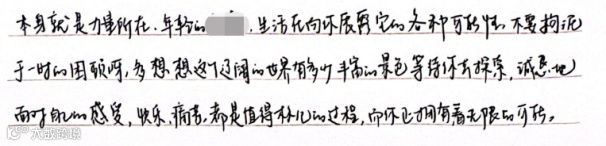 本身就是力量所在。年轻的 ，生活在向你展露它的各种可能性，不要拘泥
于一时的困顿呀，多想想这个辽阔的世界有多少丰富的景色等待你去探索，诚恳地
面对自己的感受，快乐、痛苦，都是值得铭记的过程，而你正拥有着无限的可能。
大象跨境